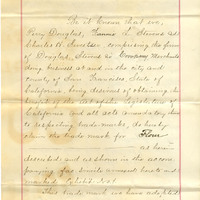 Be it Known that we,
Perry Douglas, Stearns and
Charles H. comprising the firm
of Douglas, Stearns & Company
doing business at and in the city and
county of San Francisco, State of
California, being desirous of obtaining the
benefit of the Act of the Legislature of
California and all acts amendatory thereto
respecting trade marks, do hereby
claim the trade mark for Flour
as here
described and as shown in the accom
panying fac simile annexed hereto and
marked Exhibit No 1
This trade mark we have adopted